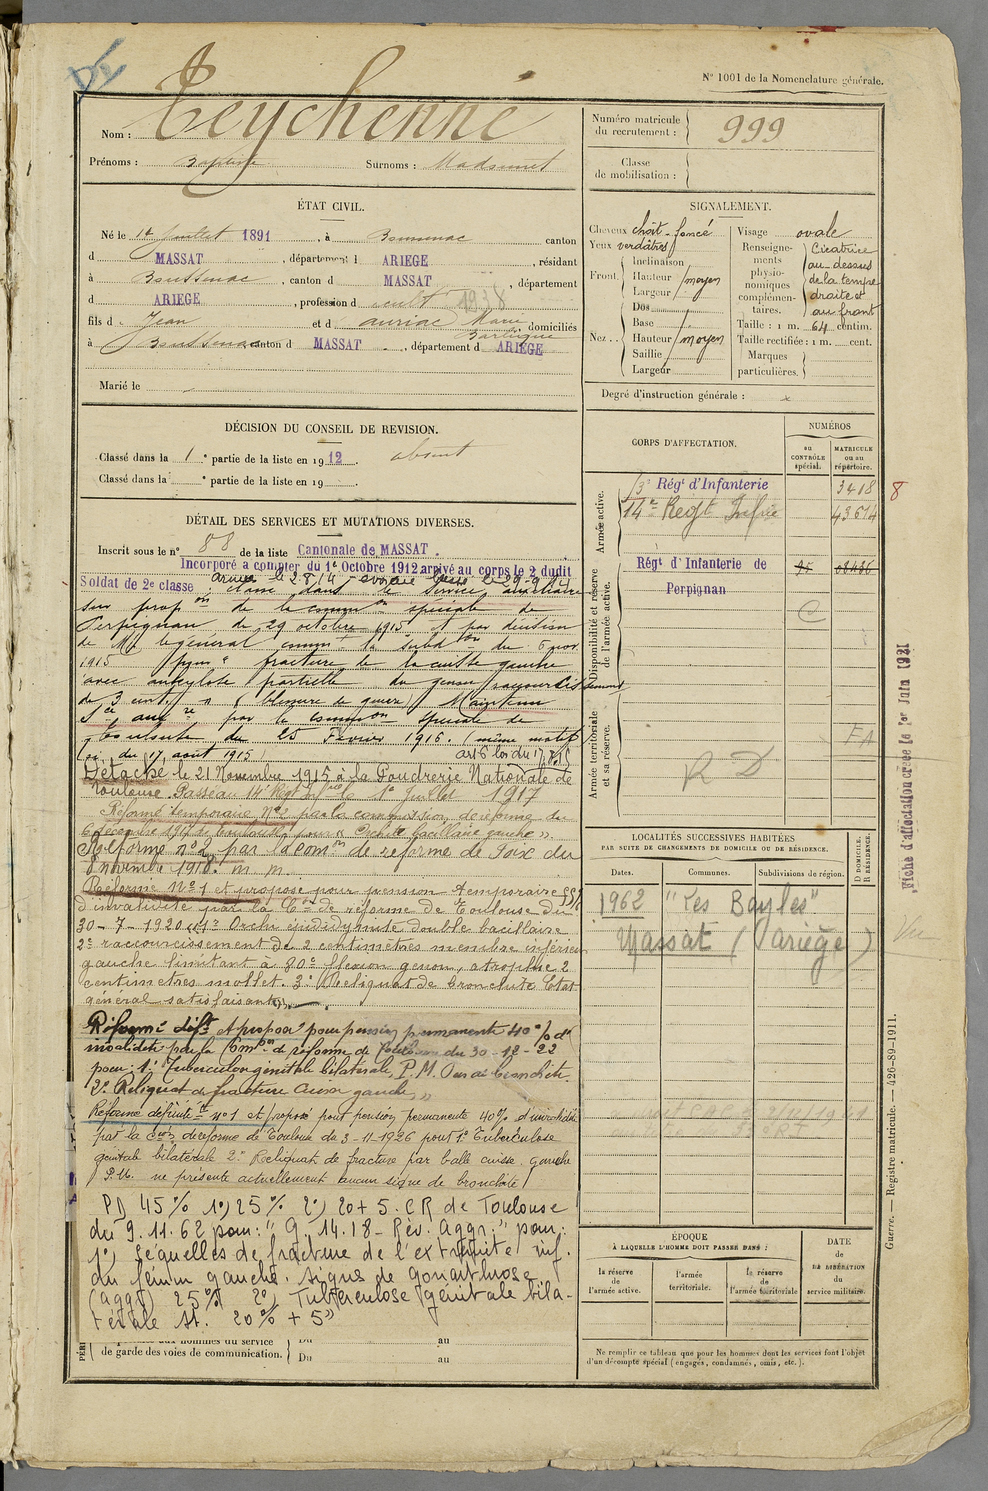 N° 1001 de la Nomenclature générale.
Nom : Teychenné
Prénoms : Baptiste Surnoms :
Numéro matricule du recrutement : 999
Classe de mobilisation :
ÉTAT CIVIL.
Né le 14 juillet 1891, à Boussenac canton
d MASSAT, département d ARIEGE, résidant
à Boussenac, canton d MASSAT, département
d ARIEGE, profession d cult 1938
fils d Jean et d auriac Marie domiciliés
à Boussenac canton d MASSAT, département d ARIEGE
Marié le
SIGNALEMENT.
Cheveux chât. foncé
Yeux verdâtres
Front. Inclinaison
Hauteur moyen
Largeur
Nez.. Dos
Base
Hauteur moyen
Saillie
Largeur
Visage ovale
Renseignements physionomiques complémentaires. Cicatrice au dessus de la tempe droite et au front
Taille : 1 m. 64 centim.
Taille rectifiée : 1 m. cent.
Marques particulières.
Degré d'instruction générale :
DÉCISION DU CONSEIL DE REVISION.
Classé dans la 1e partie de la liste en 1912. absent
Classé dans la e partie de la liste en 19
DÉTAIL DES SERVICES ET MUTATIONS DIVERSES.
Inscrit sous le n° 88 de la liste Cantonale de MASSAT.
Incorporé a compter du 1er Octobre 1912 arrivé au corps le 2 dudit
Soldat de 2e classe
classé dans le service auxiliaire
sur propon de la common spéciale de
Perpignan du 29 octobre 1915 et par décision
de Mr le général commt la subdon du 6 nov
1915 pour fracture de la cuisse gauche
avec ankylose partielle du genou raccourcissement
de 3 cent. (blessure de guerre) Maintenu
Sce auxre par la common spéciale de
Toulouse du 25 Février 1916. (même motif)
du 17 août 1915) art 6 loi du 17.8.15
Détaché le 21 Novembre 1915 à la Poudrerie Nationale de
Toulouse. Passé au 14e Régt d'Infie le 1er Juillet 1917
Réformé temporaire n°2 par la commission de réforme du
6 décembre 1917 de Toulouse pour « Orchite bacillaire gauche ».
Réformé n°2 par la comon de réforme de Foix du
8 novembre 1918. m. m.
Réformé N°1 et proposé pour pension temporaire
d'invalidité par la Con de réforme de Toulouse du
30-7-1920 « 1° Orchi épididymite double bacillaire
2° raccourcissement de 2 centimètres membre inférieur
gauche limitant à 80° flexion genou, atrophie 2
centimètres mollet. 3° Reliquat de bronchite Etat
général satisfaisant ».
Réformé déft et proposé pour pension permanente 40 % d'
invalidité par la Comon de réforme de Toulouse du 30-12-22
pour : 1° Tuberculose génitale bilatérale, P.M. Pas de bronchite.
2° Reliquat de fracture cuisse gauche »
Réformé définitf n°1 et proposé pour pension permanente 40% d'invalidité
par la Con de réforme de Toulouse du 3-11-1926 pour 1° Tuberculose
génitale bilatérale 2° Reliquat de fracture par balle cuisse gauche
P.M. ne présente actuellement aucun signe de bronchite
PD 45% 1°) 25% 2°) 20+5. CR de Toulouse
du 9.11.62 pour : "G. 14.18 - Rév. Aggr." pour :
1°) Séquelles de fracture de l'extrémité inf.
du fémur gauche. Signes de gonarthrose
(aggr) 25% 2°) Tuberculose génitale bila-
térale st. 20% + 5 »
de garde des voies de communication. Du au
Du au
CORPS D'AFFECTATION.
NUMÉROS
au CONTRÔLE spécial.
MATRICULE ou au répertoire.
Armée active.
Régt d'Infanterie 3418 8
14e Régt Infrie 43674
Disponibilité et réserve de l'armée active.
Régt d'Infanterie de
Perpignan
C
Armée territoriale et sa réserve.
RD
LOCALITÉS SUCCESSIVES HABITÉES
PAR SUITE DE CHANGEMENTS DE DOMICILE OU DE RÉSIDENCE.
Dates. Communes. Subdivisions de région. D DOMICILE. R RÉSIDENCE.
1962 "Les Bayles"
Massat (Ariège)
ÉPOQUE
À LAQUELLE L'HOMME DOIT PASSER DANS :
la réserve de l'armée active.
l'armée territoriale.
la réserve de l'armée territoriale
DATE
de
LA LIBÉRATION
du
service militaire.
Ne remplir ce tableau que pour les hommes dont les services font l'objet
d'un décompte spécial (engagés, condamnés, omis, etc.).
Fiche d'affectation créée le 1er Juin 1921
Guerre. — Registre matricule. — 426-89-1911.